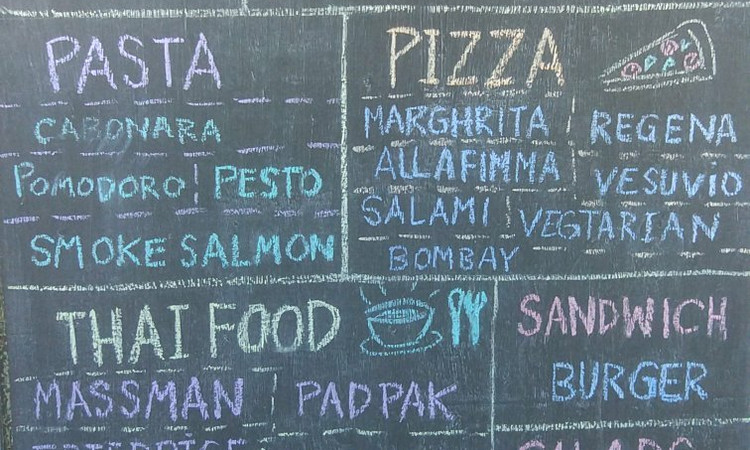 PASTA
CABONARA
POMODORO PESTO
SMOKE SALMON
PIZZA
MARGHRITA REGENA
ALLAFIMMA VESUVIO
SALAMI VEGTARIAN
BOMBAY
THAI FOOD
MASSMAN PADPAK
SANDWICH
BURGER